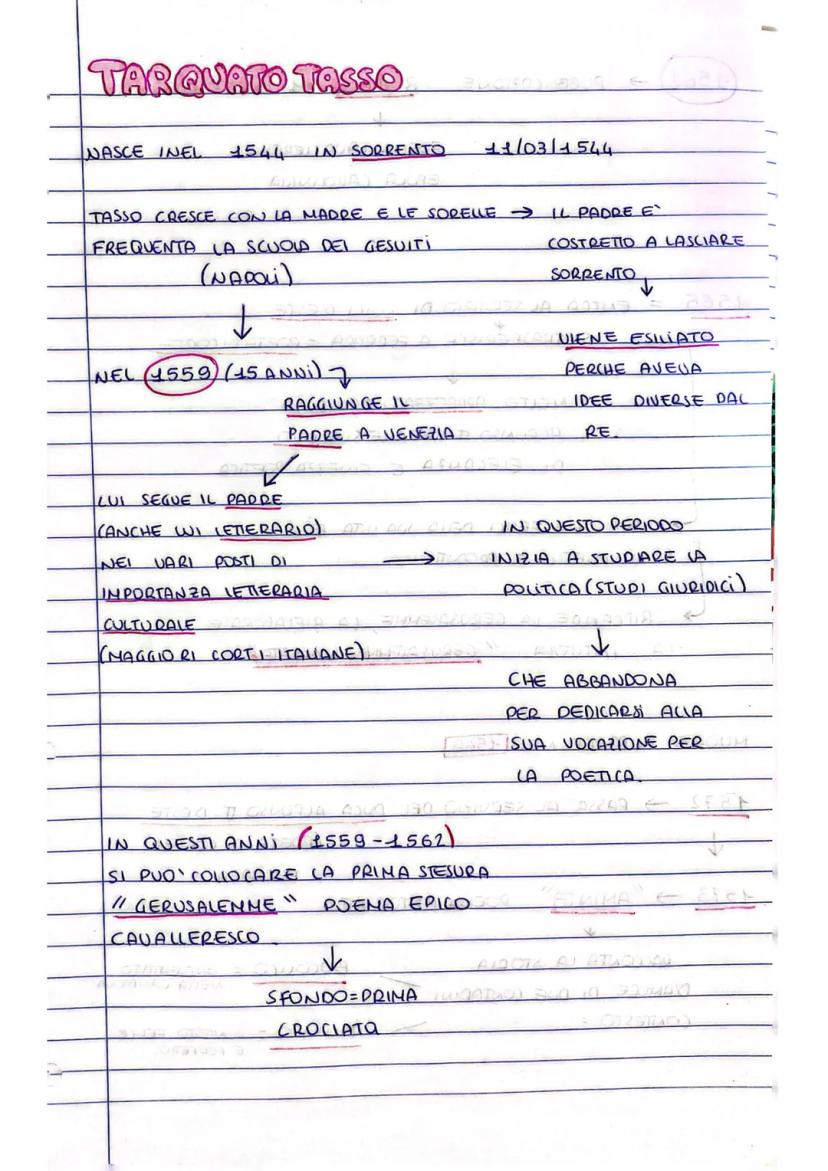 TARQUATO TASSO
NASCE INEL 1544 IN SORRENTO 11/03/1544
TASSO CRESCE CON LA MADRE E LE SORELLE → IL PADRE E'
FREQUENTA LA SCUOLA DEI GESUITI
(NAPOLI)
COSTRETTO A LASCIARE
SORRENTO
VIENE ESILIATO
PERCHE AVEVA
IDEE DIVERSE DAL
RE.
NEL 1559 (15 ANNI)
RAGGIUNGE IL
PADRE A VENEZIA
LUI SEGUE IL PADRE
(ANCHE LUI LETTERARIO)
NEI VARI POSTI DI
IMPORTANZA LETTERARIA
CULTURALE
(MAGGIORI CORTI ITALIANE)
→ IN QUESTO PERIODO
INIZIA A STUDIARE LA
POLITICA (STUDI GIURIDICI)
CHE ABBANDONA
PER DEDICARSI ALLA
SUA VOCAZIONE PER
LA POETICA.
IN QUESTI ANNI (1559-1562)
SI PUO' COLLOCARE LA PRIMA STESURA
"GERUSALEMME" POEMA EPICO
CAVALLERESCO.
SFONDO=PRIMA
CROCIATA